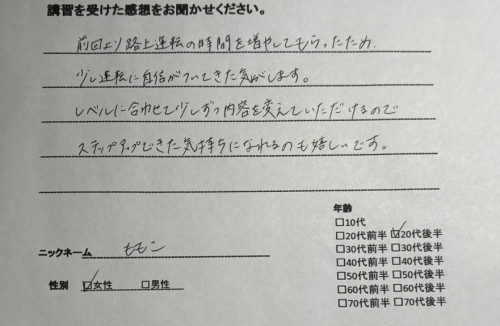 講習を受けた感想をお聞かせください。
前回より路上運転の時間を増やしてもらったため、
少し運転に自信がついてきた気がします。
レベルに合わせて少しずつ内容を変えていただけるので
ステップアップできた気持ちになれるのも嬉しいです。
年齢
□10代
□20代前半 ☑20代後半
□30代前半 □30代後半
□40代前半 □40代後半
□50代前半 □50代後半
□60代前半 □60代後半
□70代前半 □70代後半
ニックネーム ももこ
性別 ☑女性 □男性